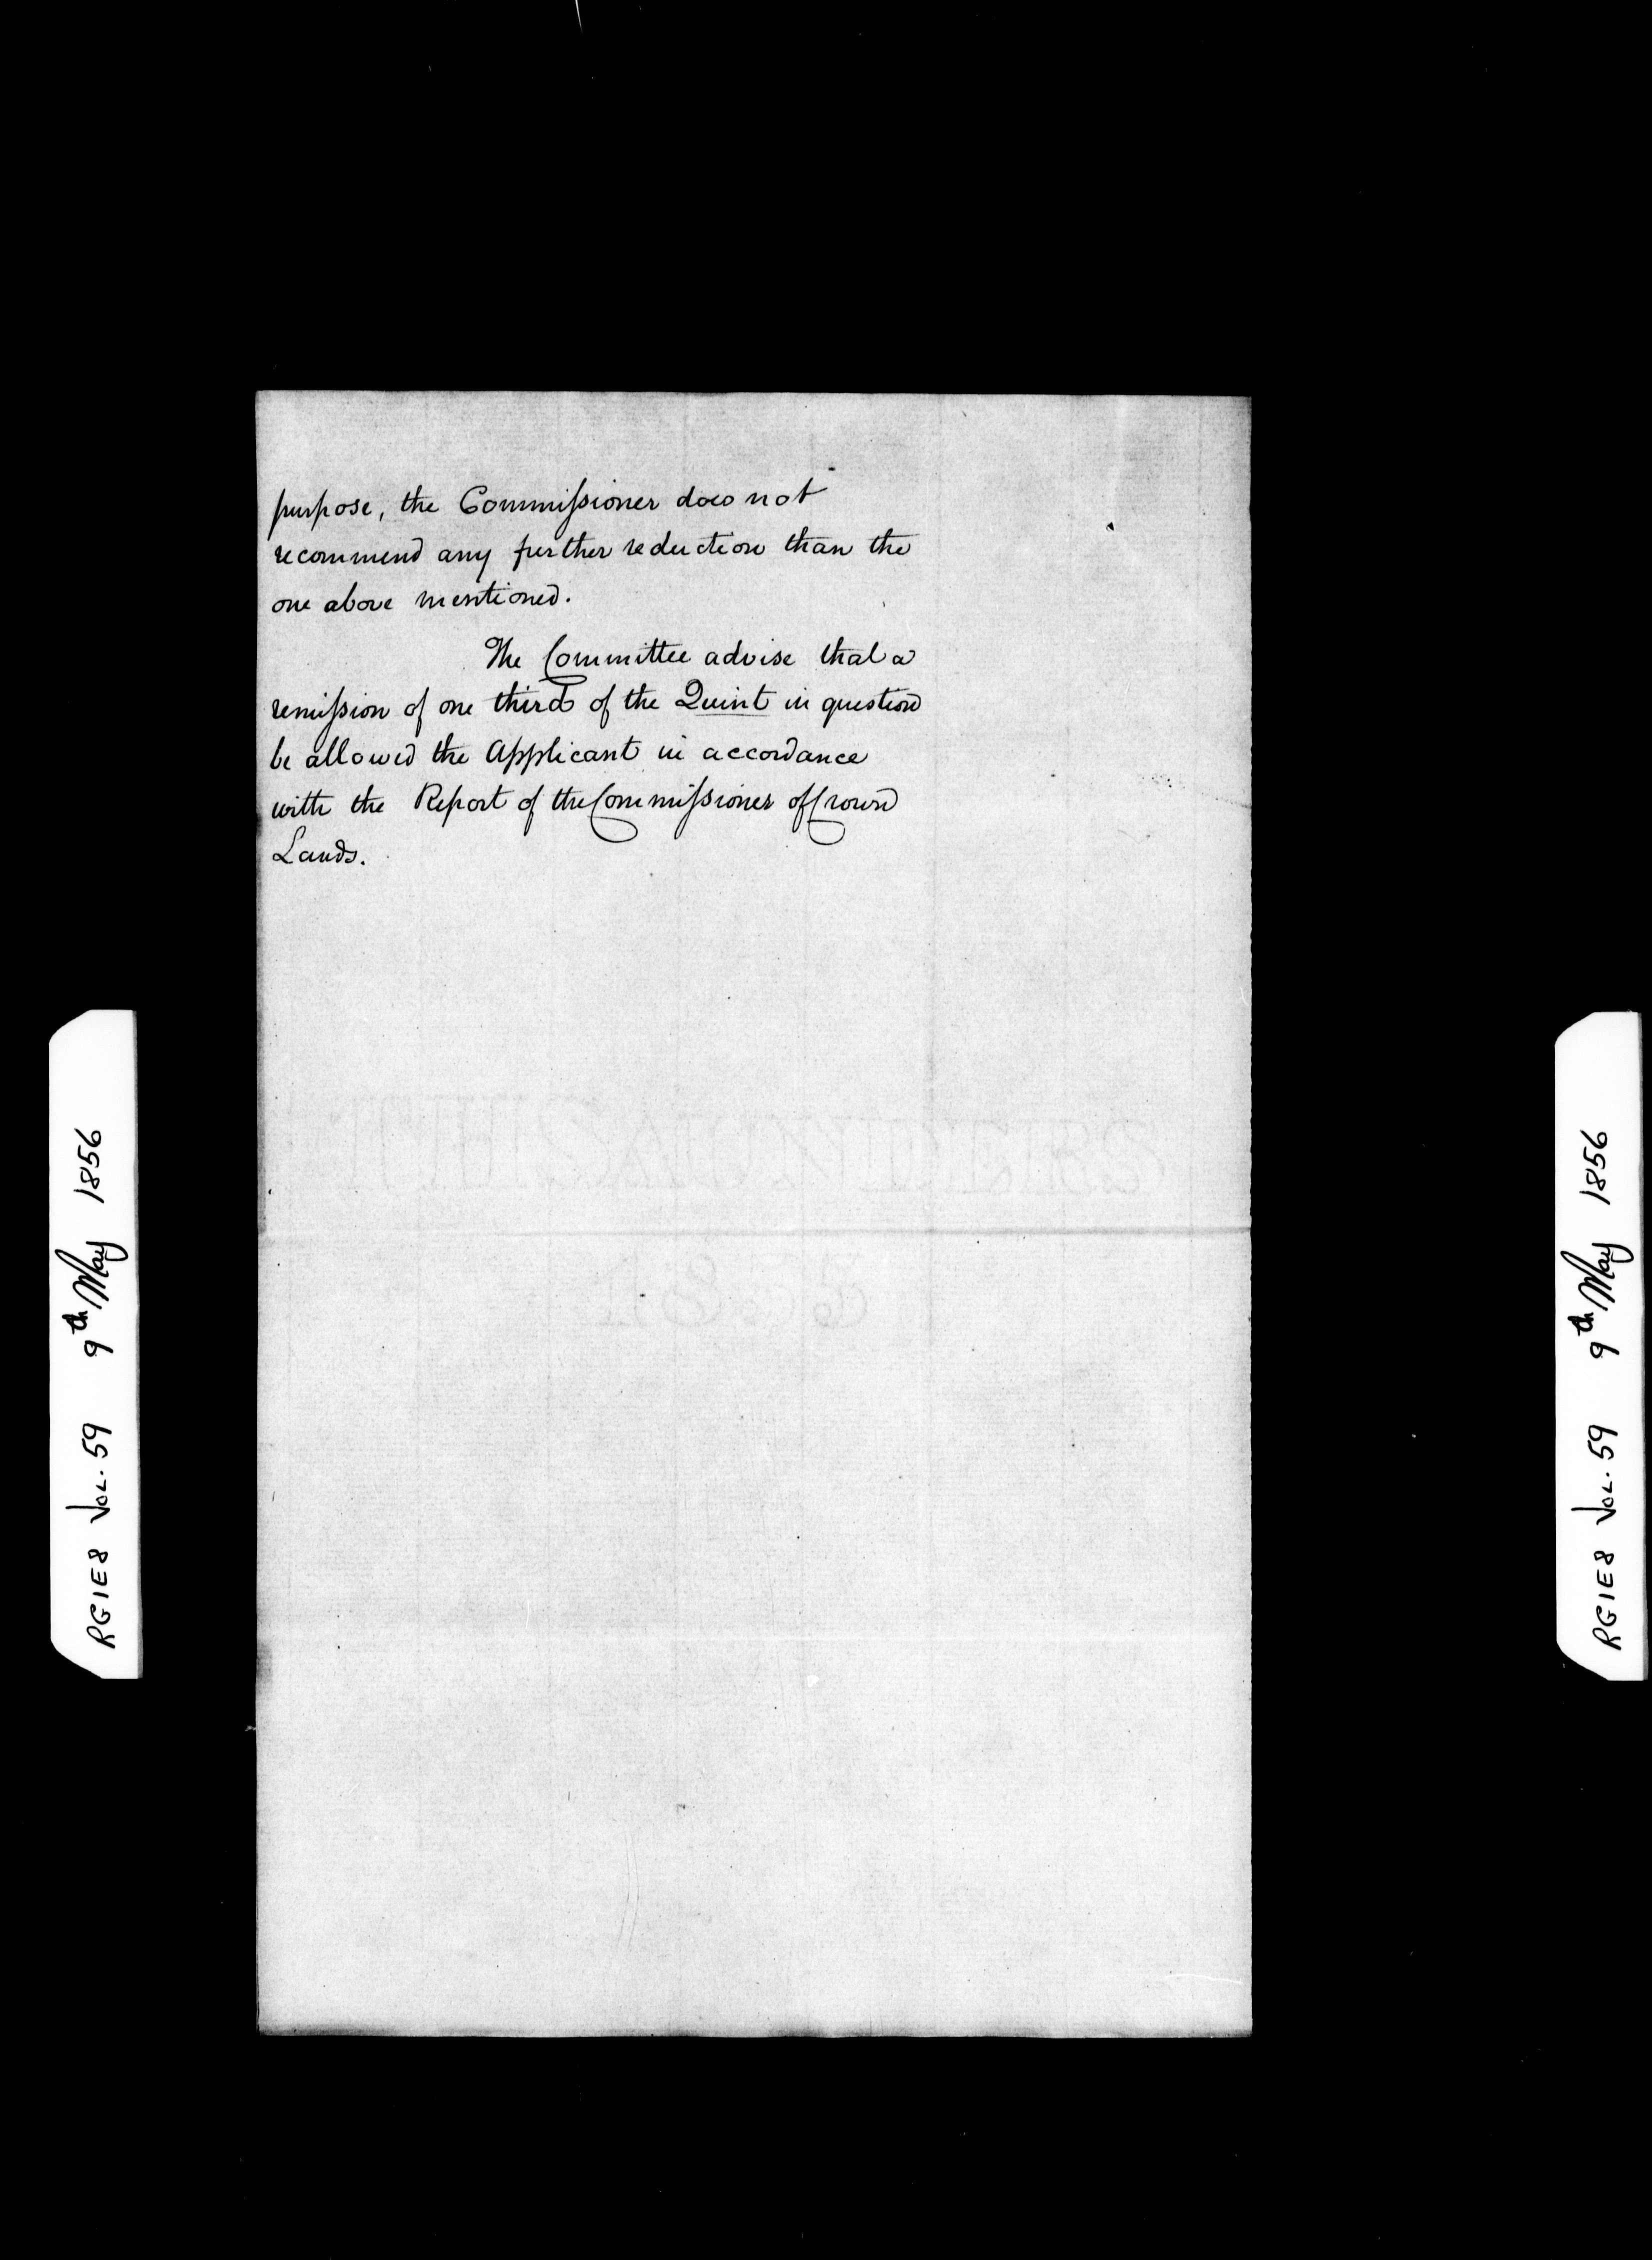 purpose, the Commissioner does not
recommend any further reduction than the
one above mentioned.
The Committee advise that a
remission of one third of the Quint in question
be allowed the Applicant in accordance
with the Report of the Commissioner of Crown
Lands.
RG1E8 VOL. 59 9th May 1856
RG1E8 VOL. 59 9th May 1856